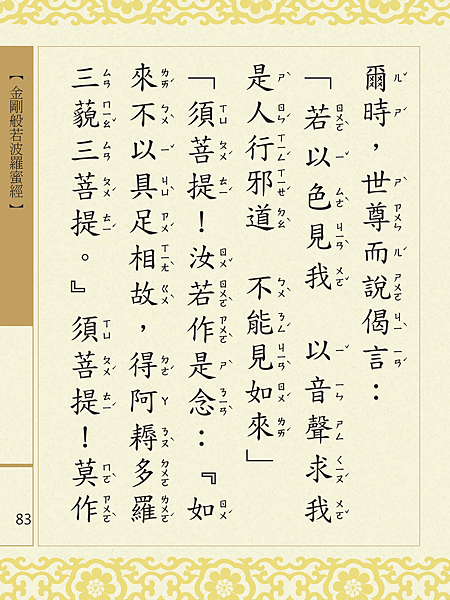 爾時，世尊而說偈言：
「若以色見我　以音聲求我
是人行邪道　不能見如來」
「須菩提！汝若作是念：『如
來不以具足相故，得阿耨多羅
三藐三菩提。』須菩提！莫作
【金剛般若波羅蜜經】
83